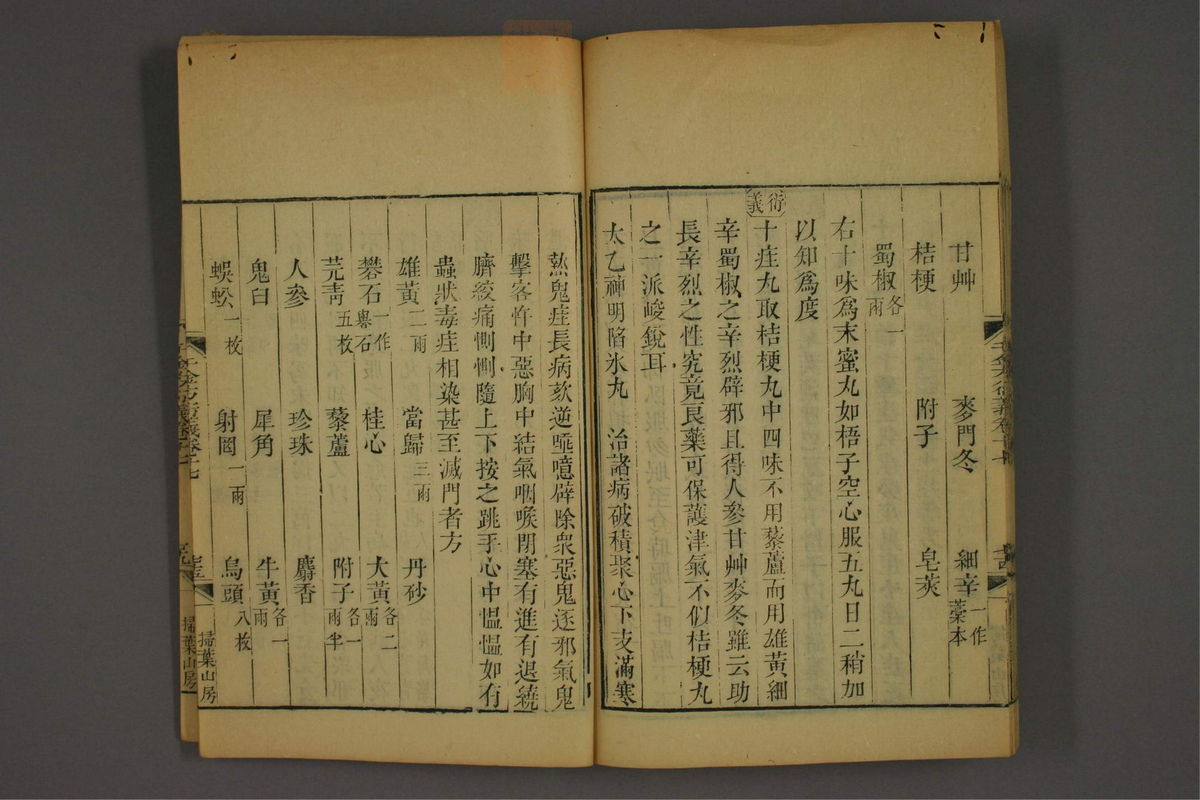 甘艸 麥門冬 細辛一作藁本
桔梗 附子 皂莢
蜀椒各一兩
右十味爲末蜜丸如梧子空心服五丸日二稍加
以知爲度
衍義
十疰丸取桔梗丸中四味不用藜蘆而用雄黃細
辛蜀椒之辛烈辟邪且得人參甘艸麥冬雖云助
長辛烈之性究竟良藥可保護津氣不似桔梗丸
之一派峻銳耳
太乙神明陷氷丸 治諸病破積聚心下支滿寒
熱鬼疰長病欬逆唾噫辟除衆惡鬼逐邪氣鬼
擊客忤中惡胸中結氣咽喉閉塞有進有退繞
臍絞痛惻惻隨上下按之跳手心中愠愠如有
蟲狀毒疰相染甚至滅門者方
雄黃二兩 當歸三兩 丹砂
礬石一作礜石 桂心 大黃各二兩
芫青五枚 藜蘆 附子各一兩半
人參 珍珠 麝香
鬼臼 犀角 牛黃各一兩
蜈蚣一枚 射罔一兩 烏頭八枚
掃葉山房